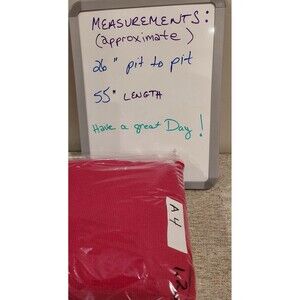 MEASUREMENTS:
(approximate)
26" pit to pit
55" LENGTH
Have a great Day!
A4